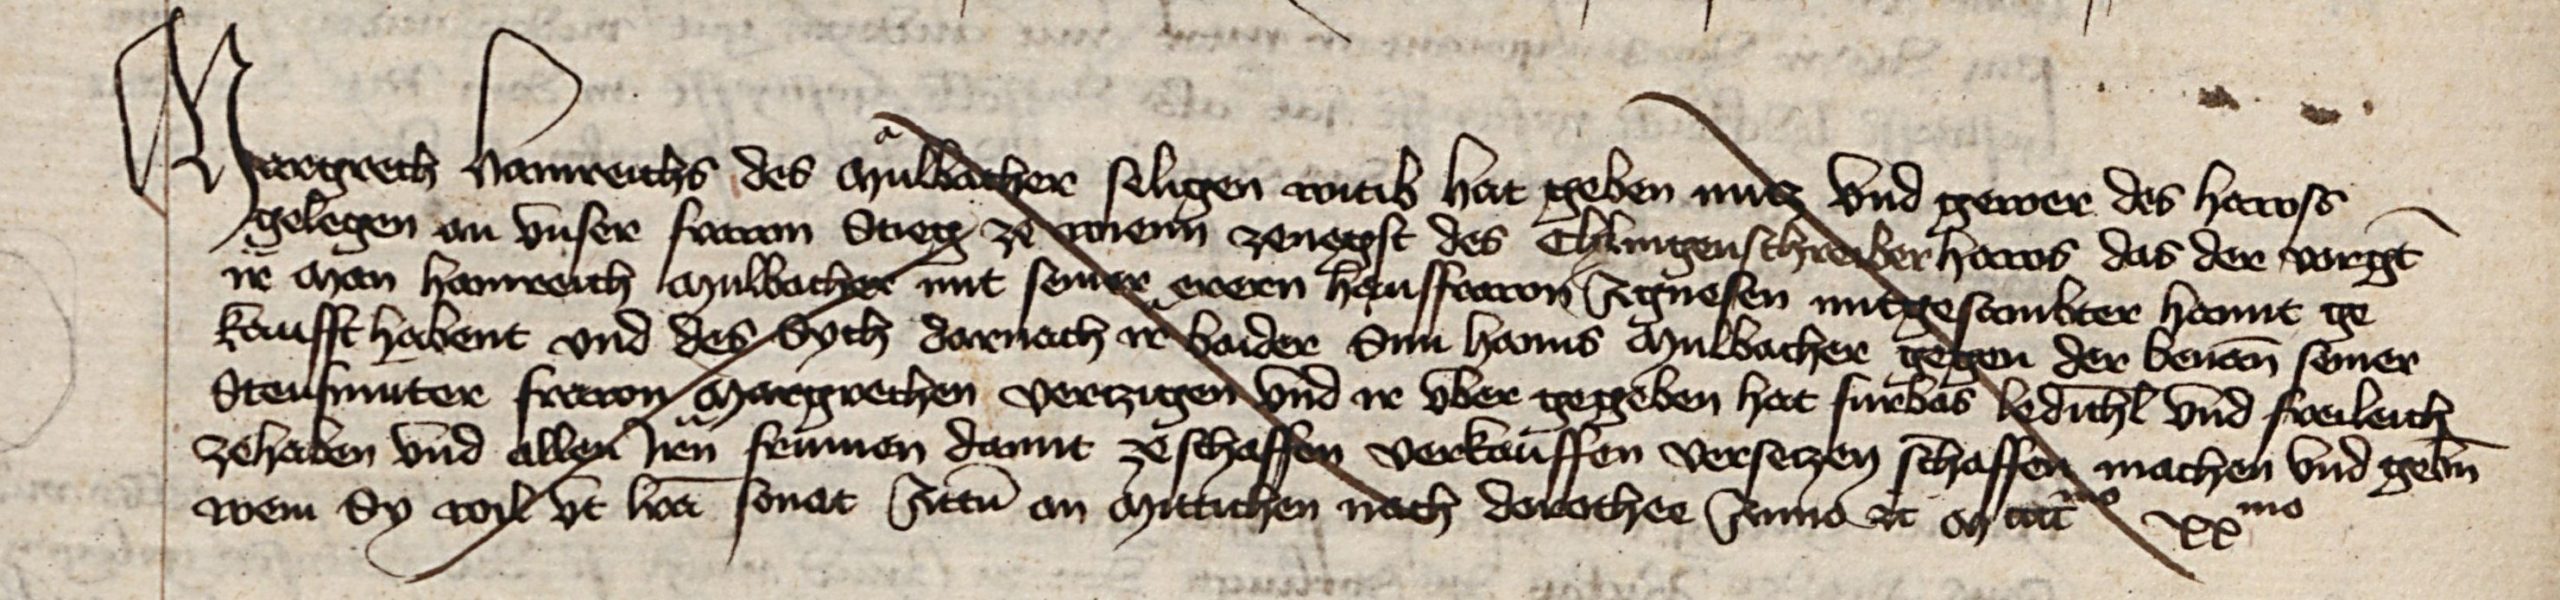 Margreth Hainreichs des Mulbacher seligen witib hat geben nucz vnd gewer des hawss
gelegen an vnser frawn Stieg ze wienn zenegst des Chlingenschreiber haws das der vorgt
ir man hainreich Mulbacher mit seiner erern hausfrawn Agnesen mitgesambter hannt ge
kaufft habent vnd des Sych darnach ir baider Sun hanns Mulbacher gegen der benan seiner
Steufmuter frawn Margrethen verczigen vnd ir vber gegeben hat furbas ledichl vnd freileich
zehaben vnd allen irn frumen damit ze schaffen verkauffen verseczen schaffen machen vnd gebn
wem Sy wyl vt lra sonat Actu an Mittichen nach dorothee Anno etc M cccc mo xx mo